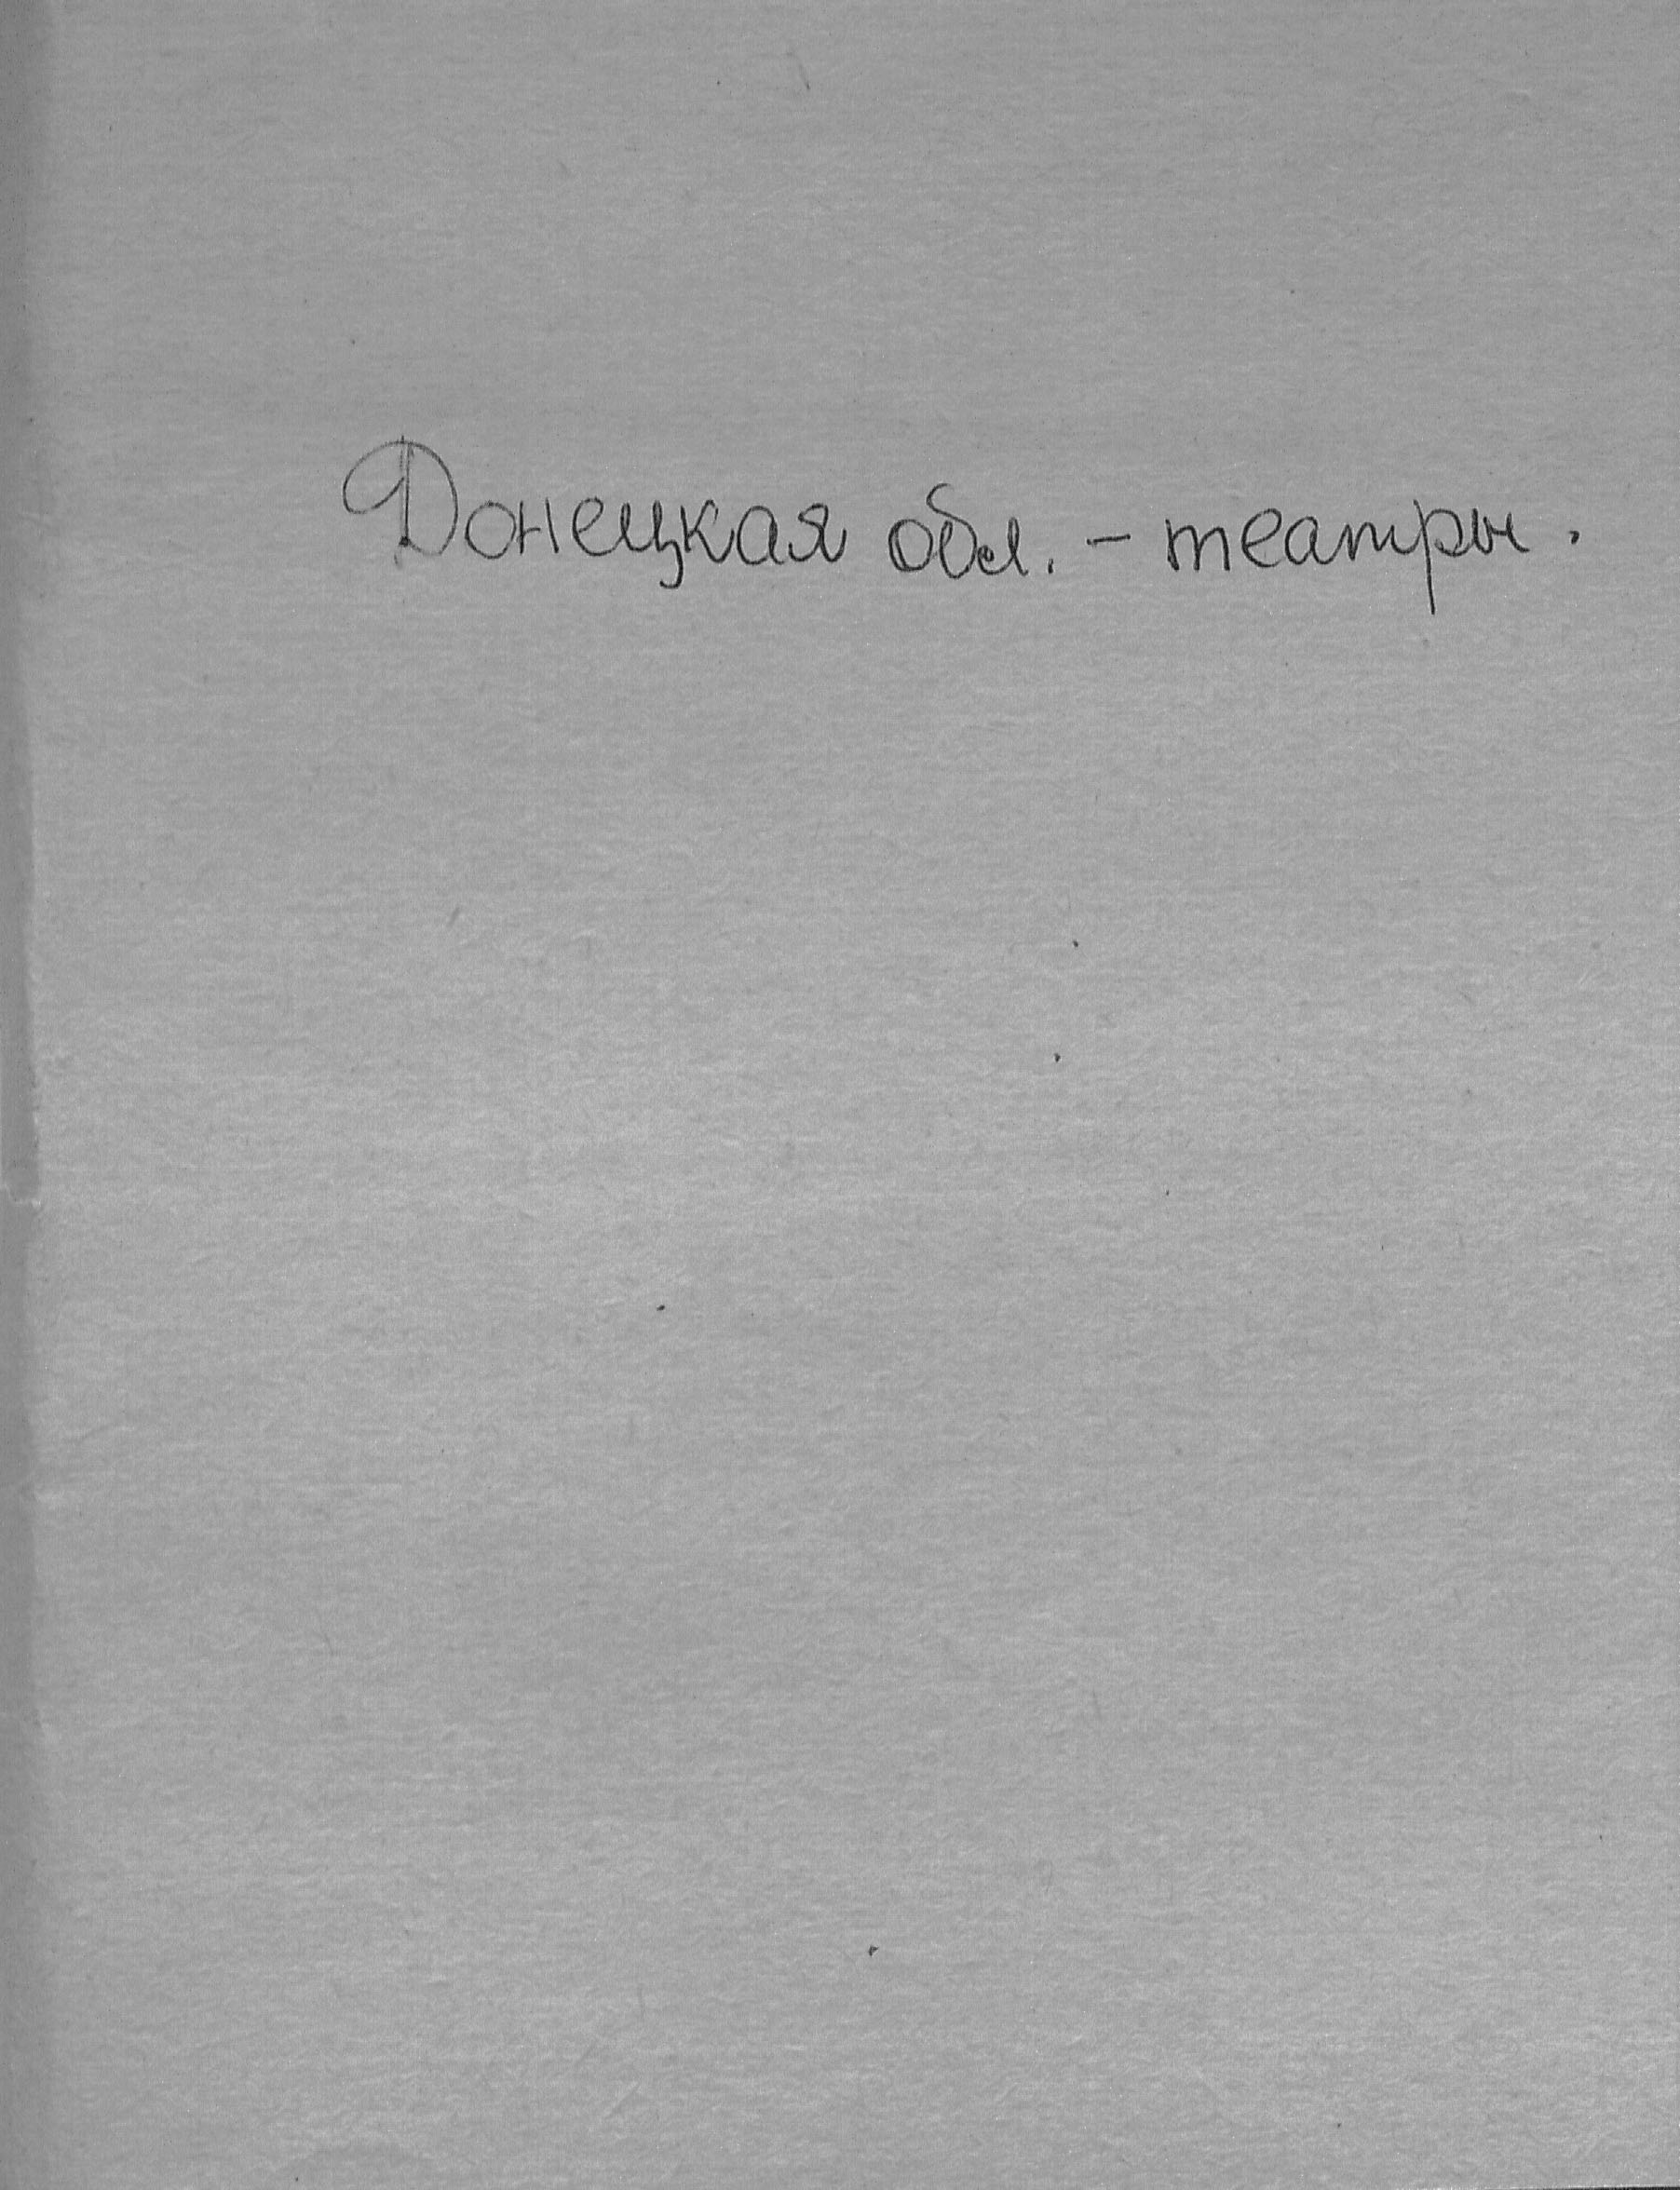 Донецкая обл. - театры.